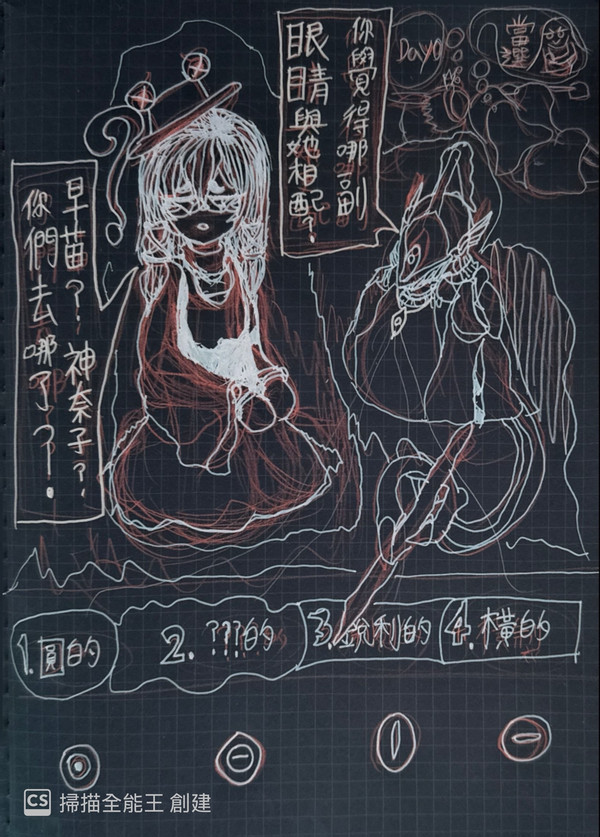 你覺得哪副
眼睛與她相配?
Dayo
當
選
早苗?!神奈子?!
你們去哪了?!
1.圓的
2.???的
3.銳利的
4.橫的
CS 掃描全能王 創建